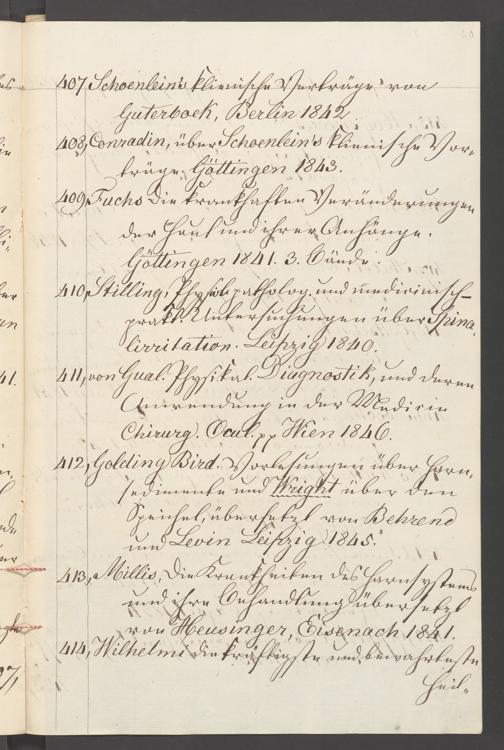 40
407, Schoenlein's klinische Vorträge von
Guterbock, Berlin 1842
408, Conradin, über Schoenlein's klinische Vor-
träge. Göttingen 1843.
409, Fuchs die krankhaften Veränderungen
der Haut und ihrer Anhänge.
Göttingen 1841. 3. Bände.
410, Stilling, Physiol. patholog. und medicinisch-
prakt. Untersuchungen über Spina
lirritation. Leipzig 1840.
411, von Gual. Physikal. Diagnostik, und deren
Anwendung in der Medicin
Chirurg. Ocul. pp Wien 1846.
412, Golding Bird. Vorlesungen über Harn-
sedimente und Wright über den
Speichel, übersetzt von Behrend
und Levin Leipzig 1845.
413, Millis, die Krankheiten des Harnsystems
und ihre Behandlung übersetzt
von Heusinger, Eisenach 1841.
414, Wilhelmi die kräftigste und bewahrteste
Heil-